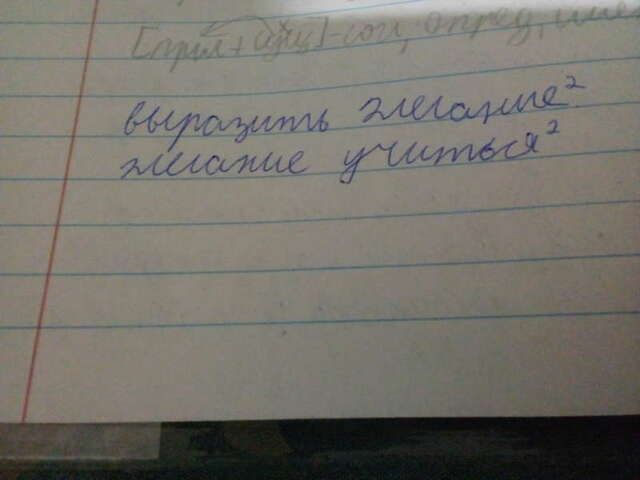 [прил + сущ] - сог, опред,
выразить желание²
желание учиться²